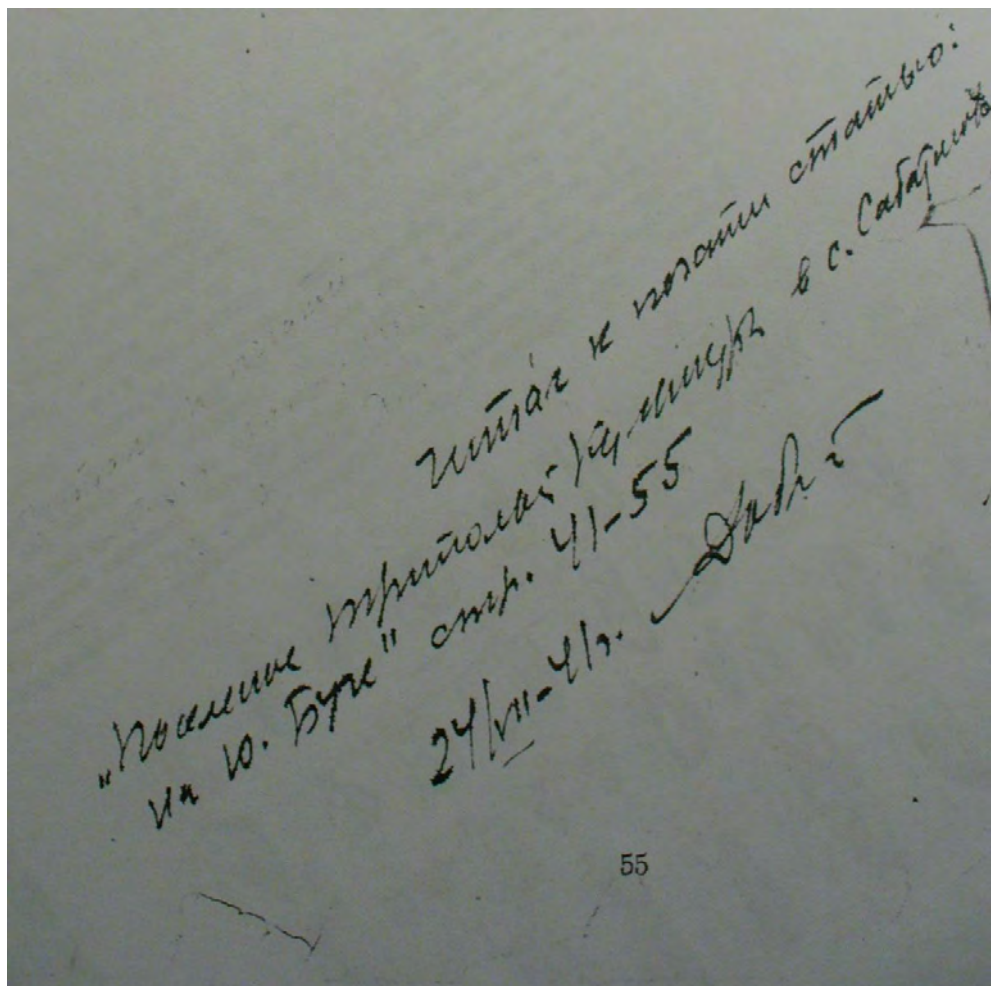 Читал к печати статью:
„Поселение трипольск. культуры в с. Сабатиновк
на Ю. Буге" стр. 41-55
24/VII-41г.
55